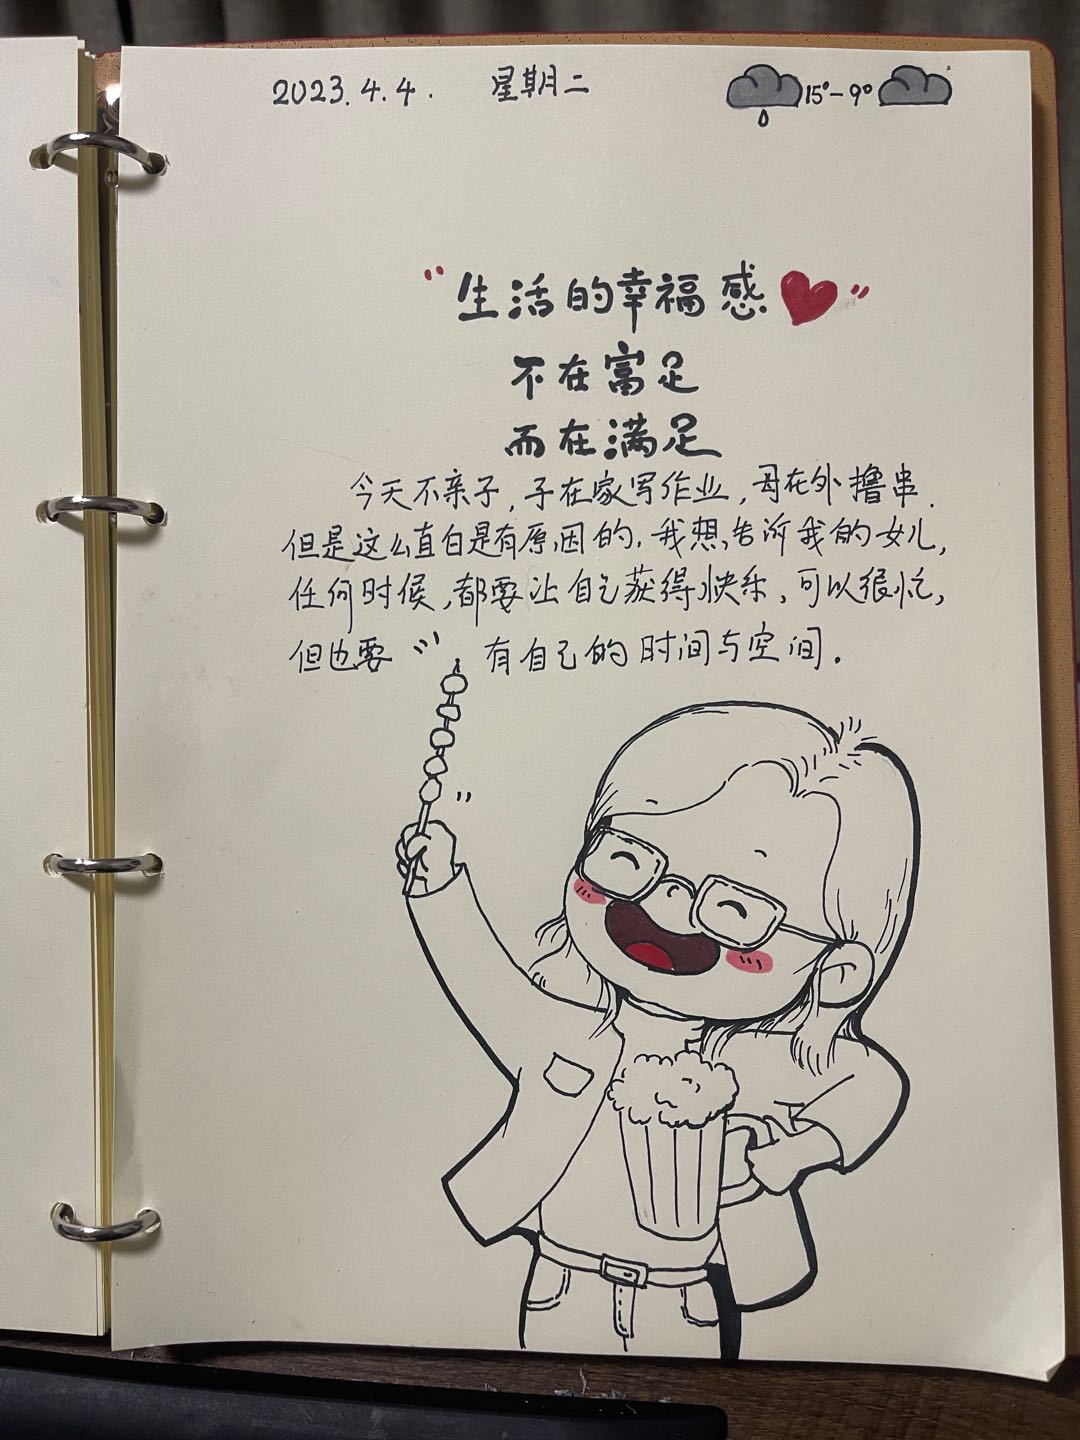 2023.4.4. 星期二 15°-9°
“生活的幸福感”
不在富足
而在满足
今天不亲子，子在家写作业，母在外撸串.
但是这么直白是有原因的，我想告所我的女儿，
任何时候，都要让自己获得快乐，可以很忙，
但也要 有自己的时间与空间.